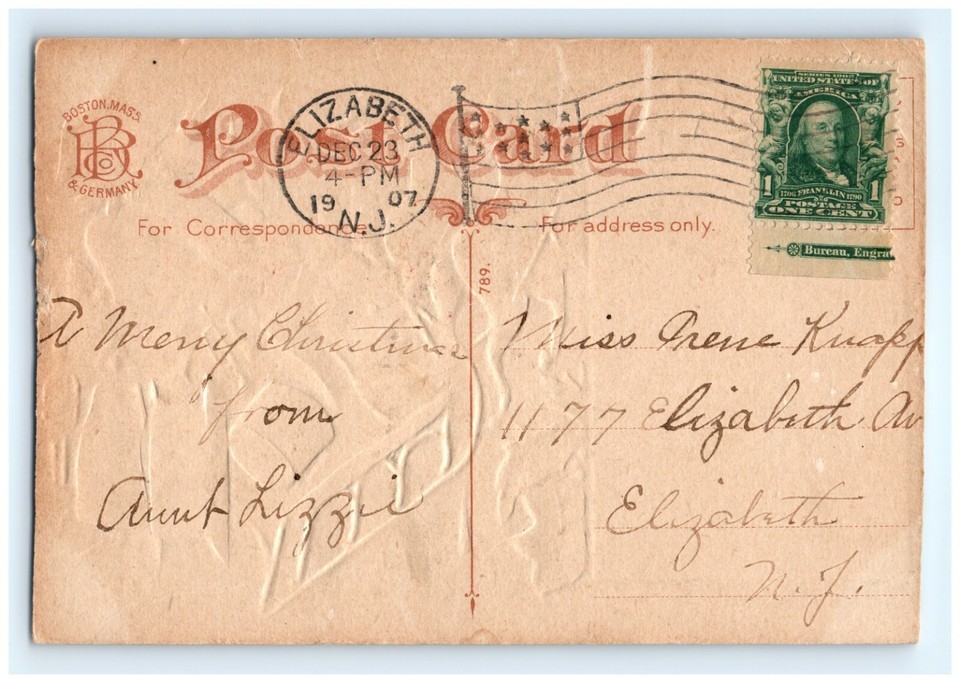 BOSTON, MASS.
BRCoY
& GERMANY.
Post Card
ELIZABETH
DEC 23
4-PM
1907
N.J.
SERIES 1902
UNITED STATES OF
AMERICA
1 1706 FRANKLIN 1790 1
POSTAGE
ONE CENT
Bureau, Engra
For Correspondence
For address only.
789.
A Merry Christmas
from
Aunt Lizzie
Miss Irene Knapp
1177 Elizabeth Av
Elizabeth
N. J.